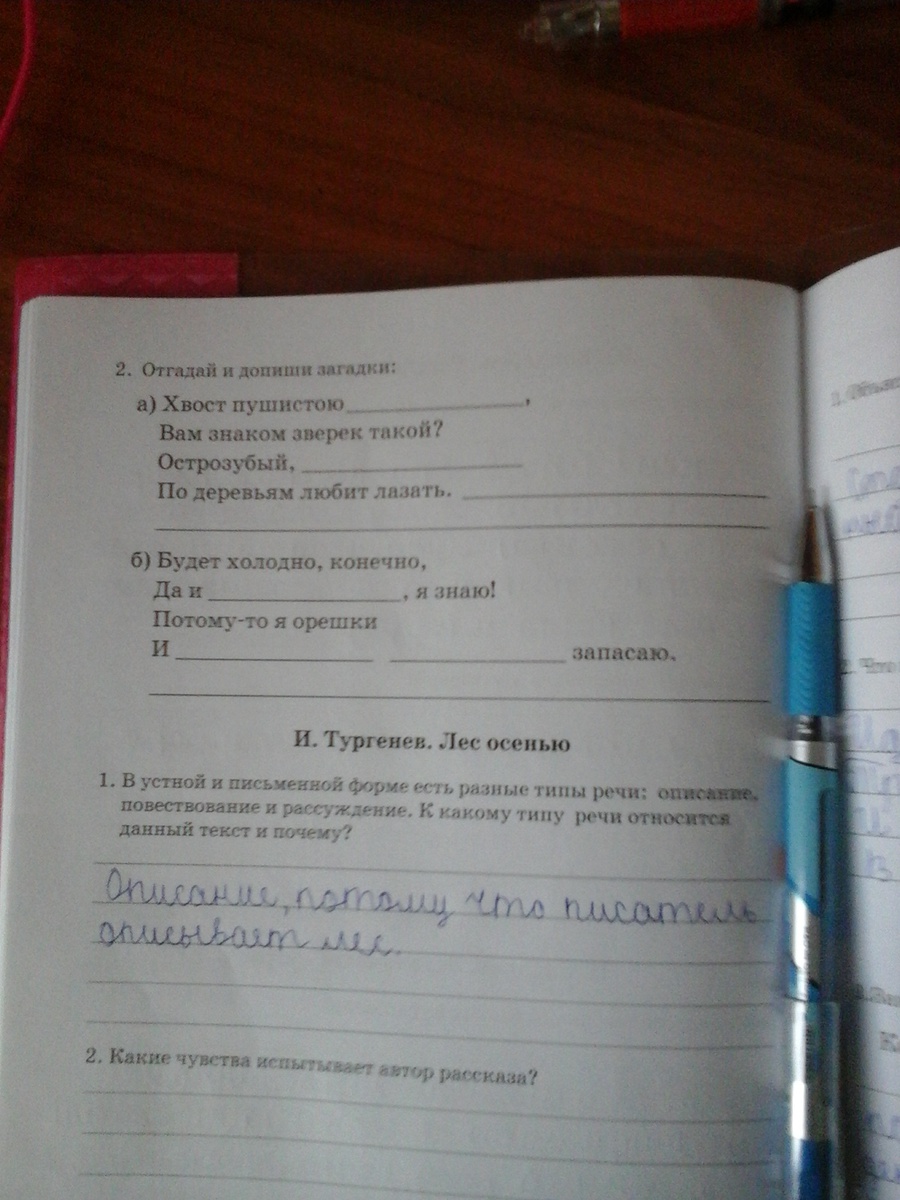 2. Отгадай и допиши загадки:
а) Хвост пушистою ,
Вам знаком зверек такой?
Острозубый,
По деревьям любит лазать.
б) Будет холодно, конечно,
Да и , я знаю!
Потому-то я орешки
И запасаю.
И. Тургенев. Лес осенью
1. В устной и письменной форме есть разные типы речи: описание,
повествование и рассуждение. К какому типу речи относится
данный текст и почему?
Описание, потому что писатель
описывает лес.
2. Какие чувства испытывает автор рассказа?